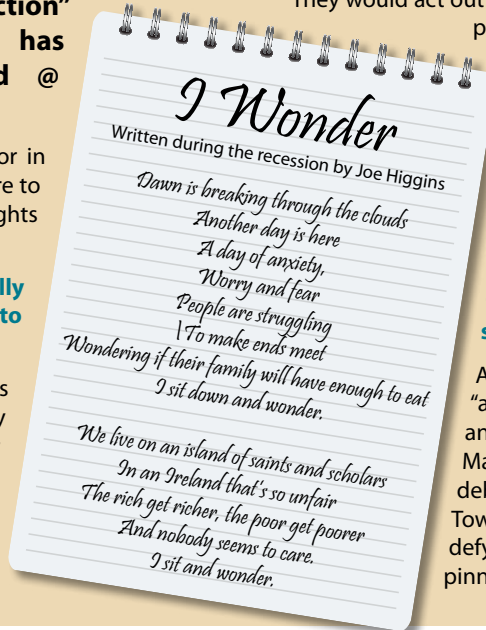 ction”
has
d @
or in
re to
ghts
lly
to
s
y
They would act out
p
I Wonder
Written during the recession by Joe Higgins
Dawn is breaking through the clouds
Another day is here
A day of anxiety,
Worry and fear
People are struggling
|To make ends meet
Wondering if their family will have enough to eat
I sit down and wonder.
We live on an island of saints and scholars
In an Ireland that's so unfair
The rich get richer, the poor get poorer
And nobody seems to care.
I sit and wonder.
s
A
“a
an
Ma
del
Tow
defy
pinn